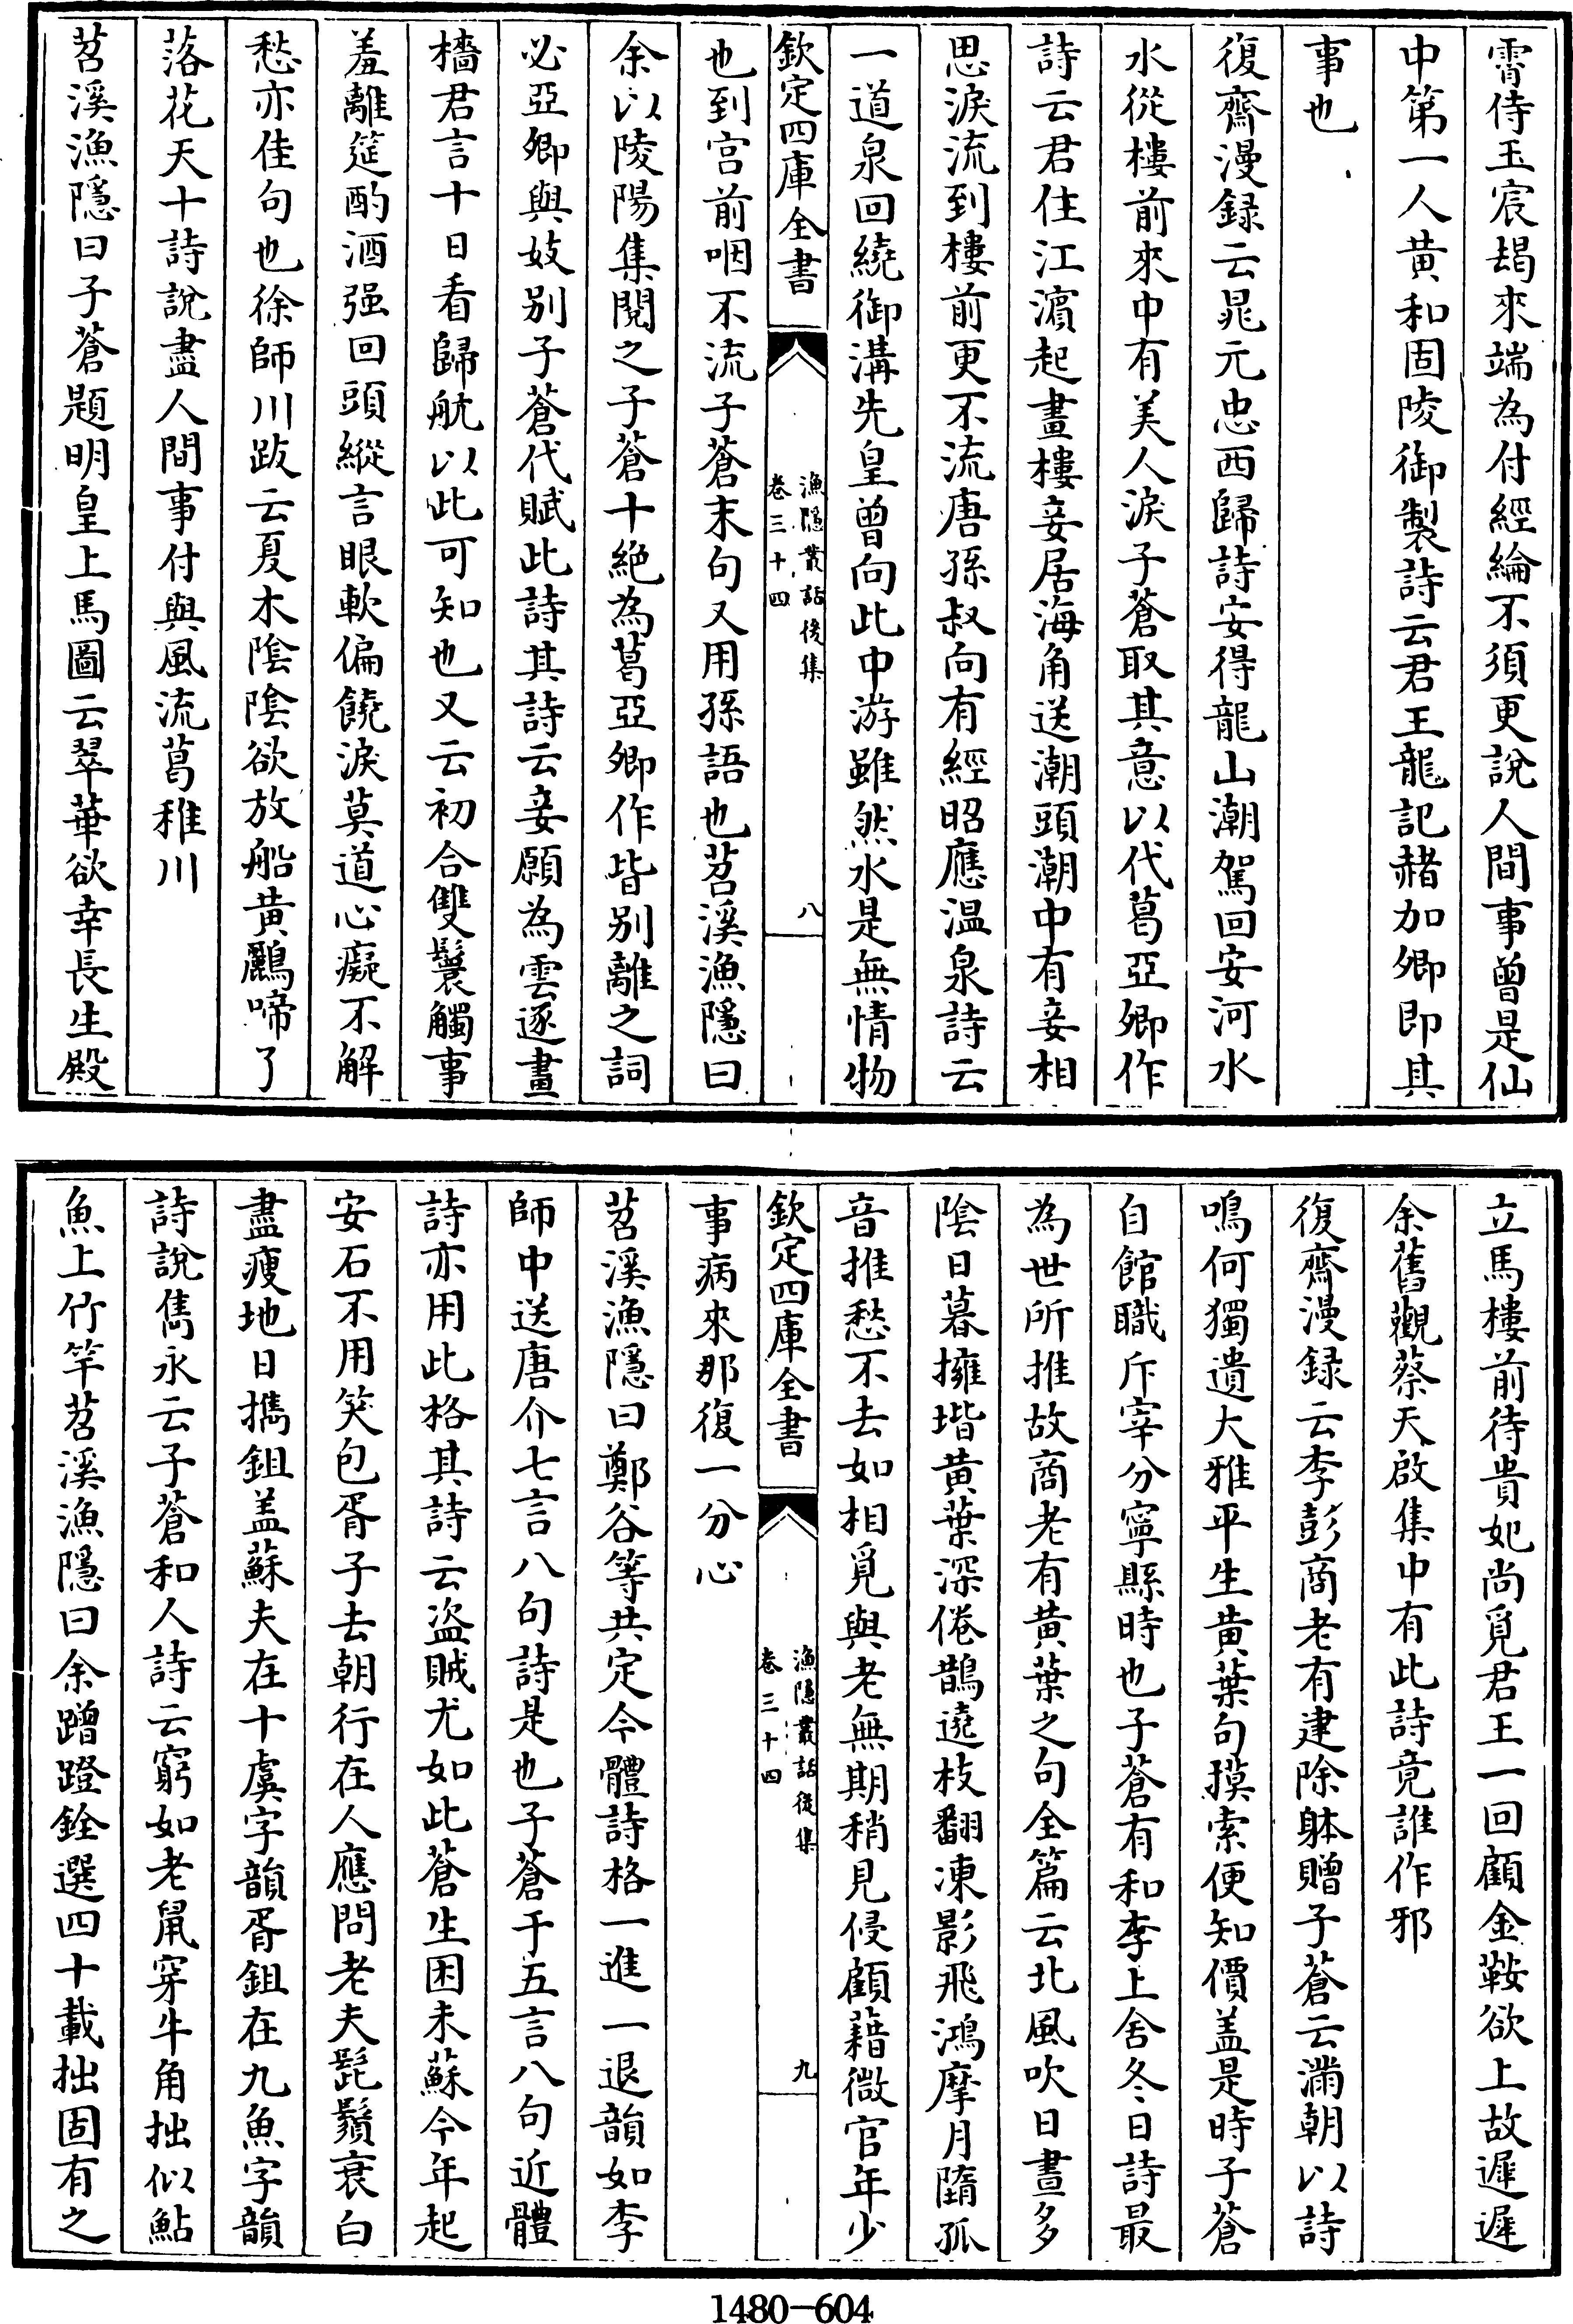 霄侍玉宸朅來端為付經綸不須更說人間事曾是仙
中第一人黄和固陵御製詩云君王龍記赭加卿即其
事也
復齋漫録云晁元忠西歸詩安得龍山潮駕回安河水
水從樓前來中有美人淚子蒼取其意以代葛亞卿作
詩云君住江濵起畫樓妾居海角送潮頭潮中有妾相
思淚流到樓前更不流唐孫叔向有經昭應温泉詩云
一道泉回繞御溝先皇曾向此中游雖然水是無情物
欽定四庫全書
漁隱叢話後集
卷三十四
八
也到宫前咽不流子蒼末句又用孫語也苕溪漁隱曰
余以陵陽集閱之子蒼十絶為葛亞卿作皆别離之詞
必亞卿與妓别子蒼代賦此詩其詩云妾願為雲逐畫
檣君言十日看歸航以此可知也又云初合雙鬟觸事
羞離筵酌酒强回頭縱言眼軟偏饒淚莫道心癡不解
愁亦佳句也徐師川跋云夏木陰陰欲放船黄鸝啼了
落花天十詩說盡人間事付與風流葛稚川
苕溪漁隱曰子蒼題明皇上馬圖云翠華欲幸長生殿
立馬樓前待貴妃尚覓君王一回顧金鞍欲上故遲遲
余舊觀蔡天啟集中有此詩竟誰作邪
復齋漫録云李彭商老有建除躰贈子蒼云滿朝以詩
鳴何獨遺大雅平生黄葉句摸索便知價盖是時子蒼
自館職斥宰分寧縣時也子蒼有和李上舍冬日詩最
為世所推故商老有黄葉之句全篇云北風吹日晝多
陰日暮擁堦黄葉深倦鵲遶枝翻凍影飛鴻摩月隋孤
音推愁不去如相覓與老無期稍見侵顧藉微官年少
欽定四庫全書
漁隱叢話後集
卷三十四
九
事病來那復一分心
苕溪漁隱曰鄭谷等共定今體詩格一進一退韻如李
師中送唐介七言八句詩是也子蒼于五言八句近體
詩亦用此格其詩云盗賊尤如此蒼生困未蘇今年起
安石不用笑包胥子去朝行在人應問老夫髭鬚衰白
盡瘦地日擕鉏盖蘇夫在十虞字韻胥鉏在九魚字韻
詩說雋永云子蒼和人詩云窮如老鼠穿牛角拙似鮎
魚上竹竿苕溪漁隱曰余蹭蹬銓選四十載拙固有之
1480-604